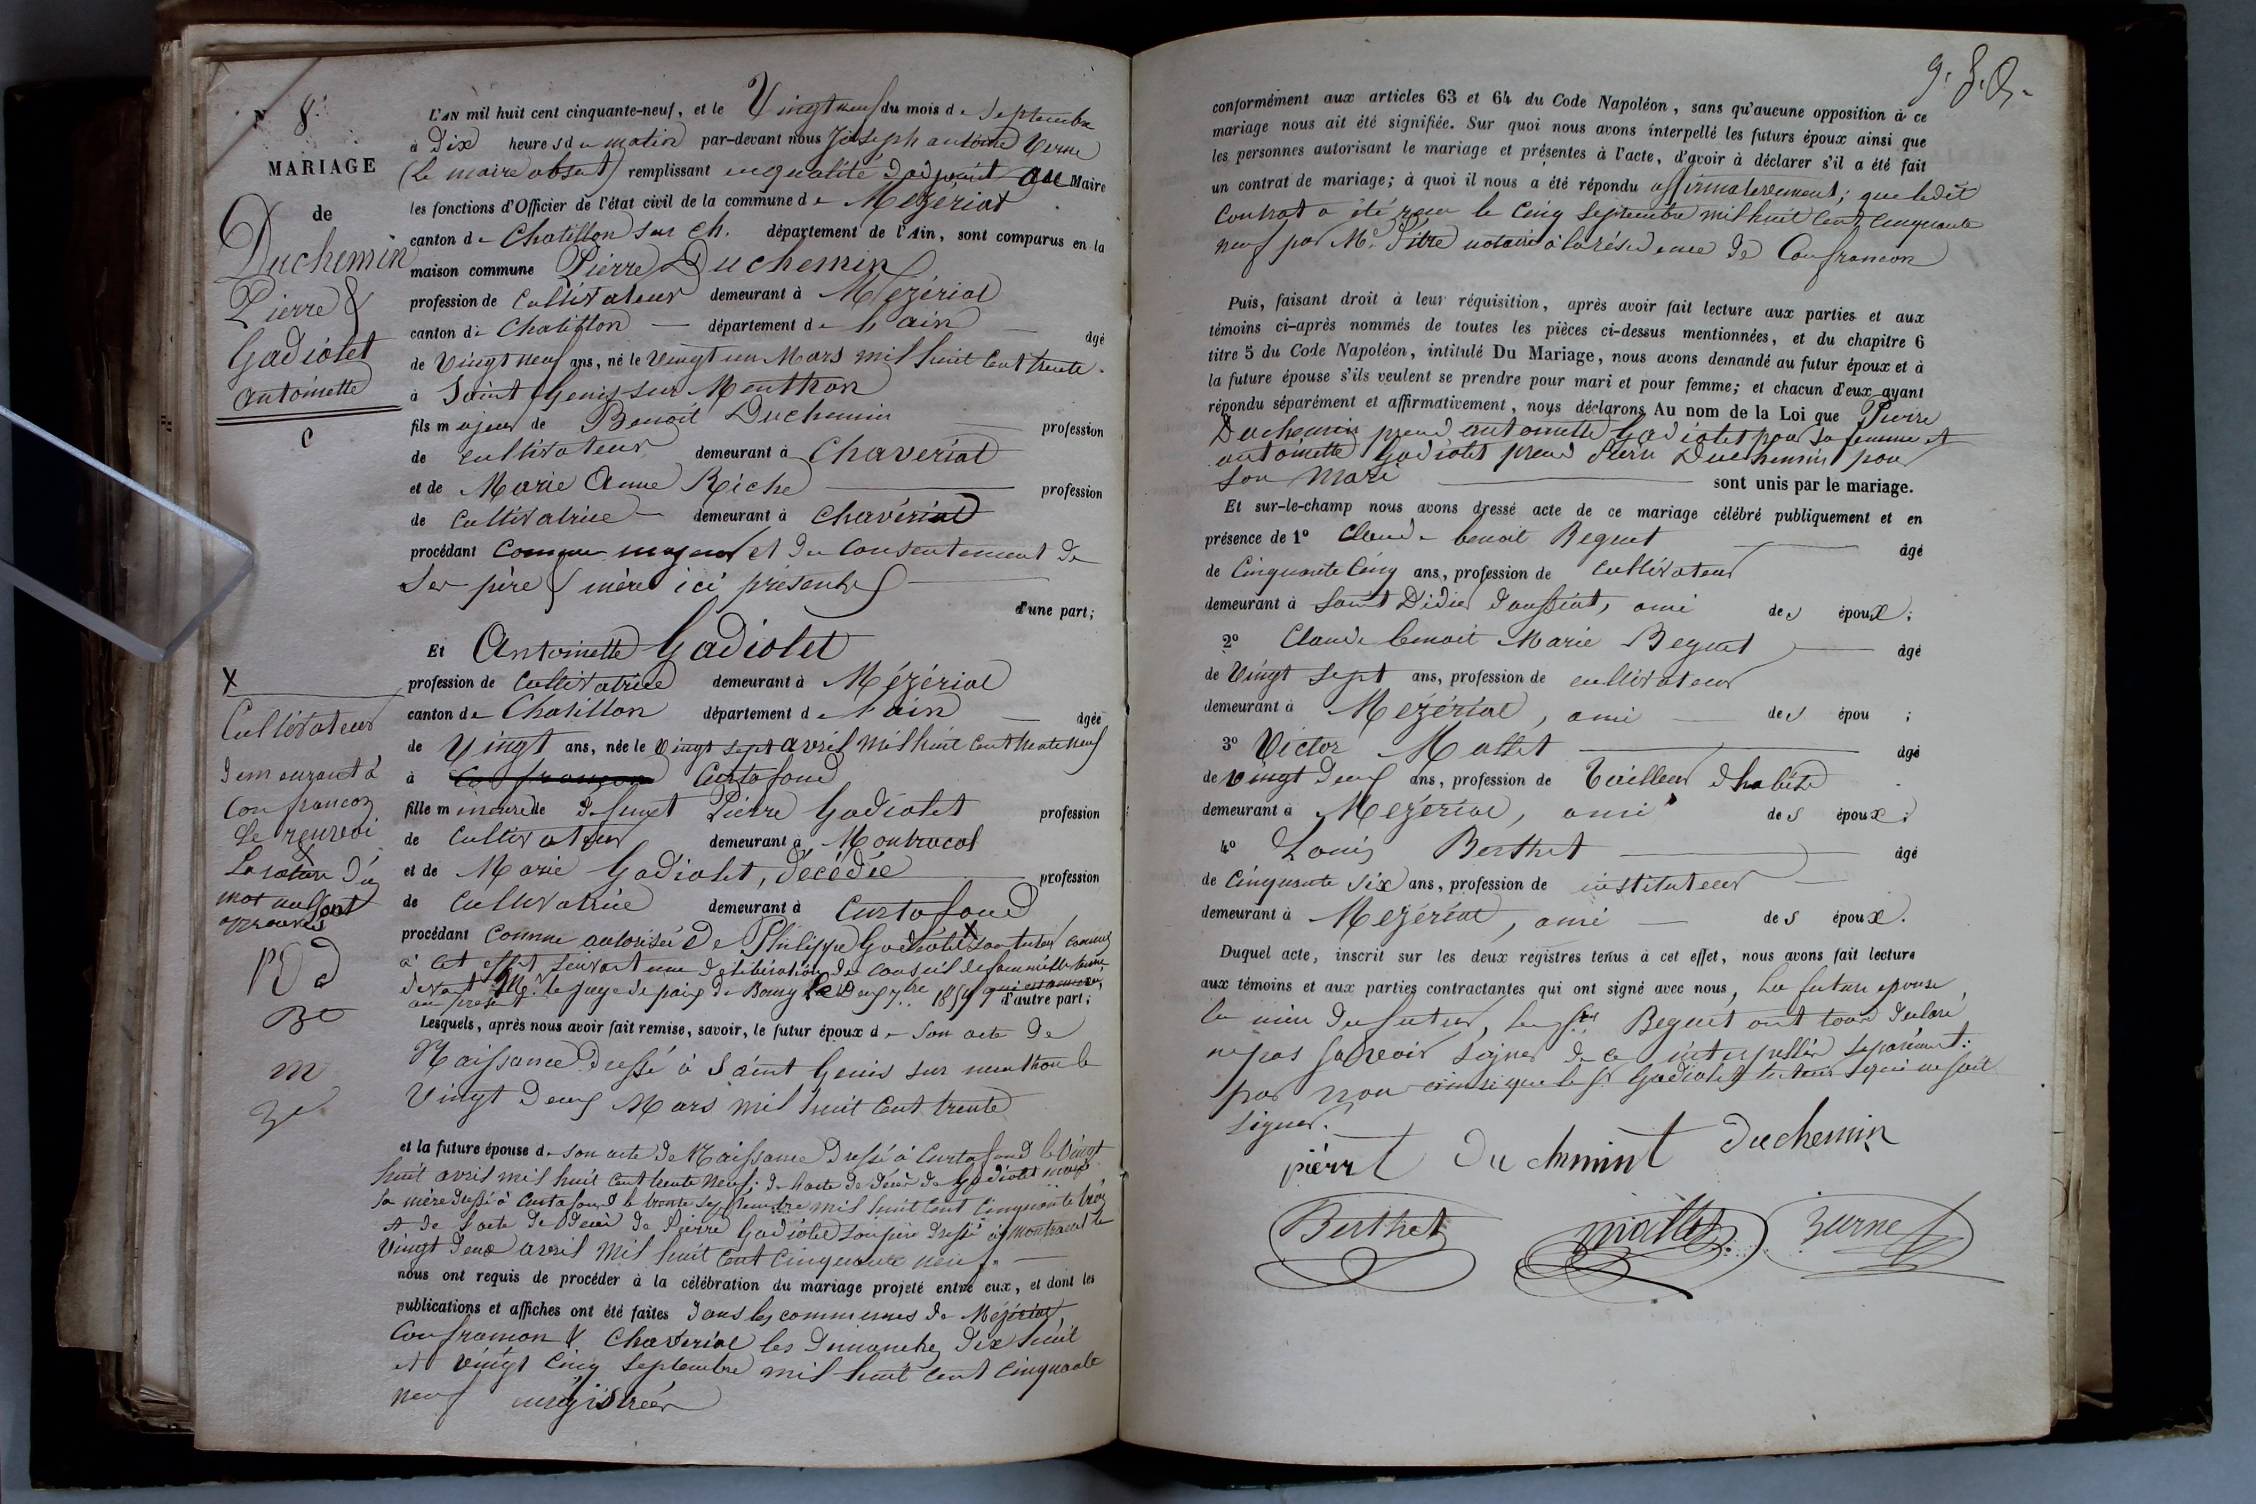 N 8.
MARIAGE
de
Duchemin
Pierre &
Gadiolet
antoinette
C
L'AN mil huit cent cinquante-neuf, et le Vingt neuf du mois de Septembre
à Dix heures du matin par-devant nous Joseph antoine Verne
(Le maire absent) remplissant en qualité d'adjoint au Maire
les fonctions d'Officier de l'état civil de la commune de Mézériat
canton de Chatillon sur Ch. département de l'Ain, sont comparus en la
maison commune Pierre Duchemin
profession de Cultivateur demeurant à Mézériat
canton de Chatillon département de l'ain âgé
de Vingt neuf ans, né le Vingt un Mars mil huit Cent trente
à Saint Genis sur Menthon
fils majeur de Benoit Duchemin profession
de cultivateur demeurant à Chaveriat
et de Marie Anne Riche profession
de Cultivatrice demeurant à Chavériat
procédant Comme majeur et du Consentement de
Ses père & mère ici présents
d'une part;
Et Antoinette Gadiolet
profession de Cultivatrice demeurant à Mézériat
canton de Chatillon département de l'ain âgée
de Vingt ans, née le Vingt sept avril mil huit Cent trente neuf
à Confrançon Curtafond
fille mineure de defunt Pierre Gadiolet profession
de Cultivateur demeurant à Montracol
et de Marie Gadiolet, décédée profession
de Cultivatrice demeurant à Curtafond
procédant Comme autorisée de Philippe Gadiolet X son tuteur Commis
à cet effet suivant une délibération du Conseil de famille tenu
devant Mr. le juge de paix de Bourg le Deux 7bre 1859
d'autre part;
X
Cultivateur
demeurant à
Confrancon
Le renvoi
La rature d'un
mot nul sont
approuvés
PD d
Lesquels, après nous avoir fait remise, savoir, le futur époux de Son acte de
Naissance Dressé à Saint Genis sur menthon le
Vingt Deux Mars mil huit Cent trente
et la future épouse de son acte de Naissance Dressé à Curtafond le Vingt
huit avril mil huit Cent trente neuf; de l'acte de décès de Gadiolet marie
sa mère dressé à Curtafond le trente Septembre mil huit Cent Cinquante trois
et de l'acte de Décès de Pierre Gadiolet son père dressé à Montracol le
Vingt deux avril Mil huit Cent Cinquante neuf.
nous ont requis de procéder à la célébration du mariage projeté entre eux, et dont les
publications et affiches ont été faites dans les communes de Mézériat,
Confrancon & Chaveriat les Dimanches Dix huit
et vingt Cinq Septembre mil huit Cent Cinquante
neuf
conformément aux articles 63 et 64 du Code Napoléon, sans qu'aucune opposition à ce
mariage nous ait été signifiée. Sur quoi nous avons interpellé les futurs époux ainsi que
les personnes autorisant le mariage et présentes à l'acte, d'avoir à déclarer s'il a été fait
un contrat de mariage; à quoi il nous a été répondu affirmativement; que ledit
Contrat a été reçu le Cinq Septembre mil huit Cent Cinquante
neuf par Me. Pitre notaire à la résidence de Confrancon
Puis, faisant droit à leur réquisition, après avoir fait lecture aux parties et aux
témoins ci-après nommés de toutes les pièces ci-dessus mentionnées, et du chapitre 6
titre 5 du Code Napoléon, intitulé Du Mariage, nous avons demandé au futur époux et à
la future épouse s'ils veulent se prendre pour mari et pour femme; et chacun d'eux ayant
répondu séparément et affirmativement, nous déclarons Au nom de la Loi que Pierre
Duchemin prend antoinette Gadiolet pour sa femme et
antoinette Gadiolet prend Pierre Duchemin pour
son Mari sont unis par le mariage.
Et sur-le-champ nous avons dressé acte de ce mariage célébré publiquement et en
présence de 1º Claude benoit Beguet âgé
de Cinquante Cinq ans, profession de cultivateur
demeurant à Saint Didier d'aussiat, ami des époux;
2º Claude benoit Marie Beguet âgé
de Vingt sept ans, profession de cultivateur
demeurant à Mézériat, ami des épou ;
3º Victor Mallet âgé
de vingt deux ans, profession de Tailleur d'habits
demeurant à Mézériat, ami des époux;
4º Louis Berthet âgé
de Cinquante Six ans, profession de instituteur
demeurant à Mézériat, ami des époux.
Duquel acte, inscrit sur les deux registres tenus à cet effet, nous avons fait lecture
aux témoins et aux parties contractantes qui ont signé avec nous, La future epouse,
la mère du futur, les srs Beguet ont tous déclaré
ne pas savoir signer de ce interpellés séparément
par nous ainsi que le sr Gadiolet tuteur qui ne sait
signer.
pierrt Duchmint Duchemin
Berthet Mallet Verne